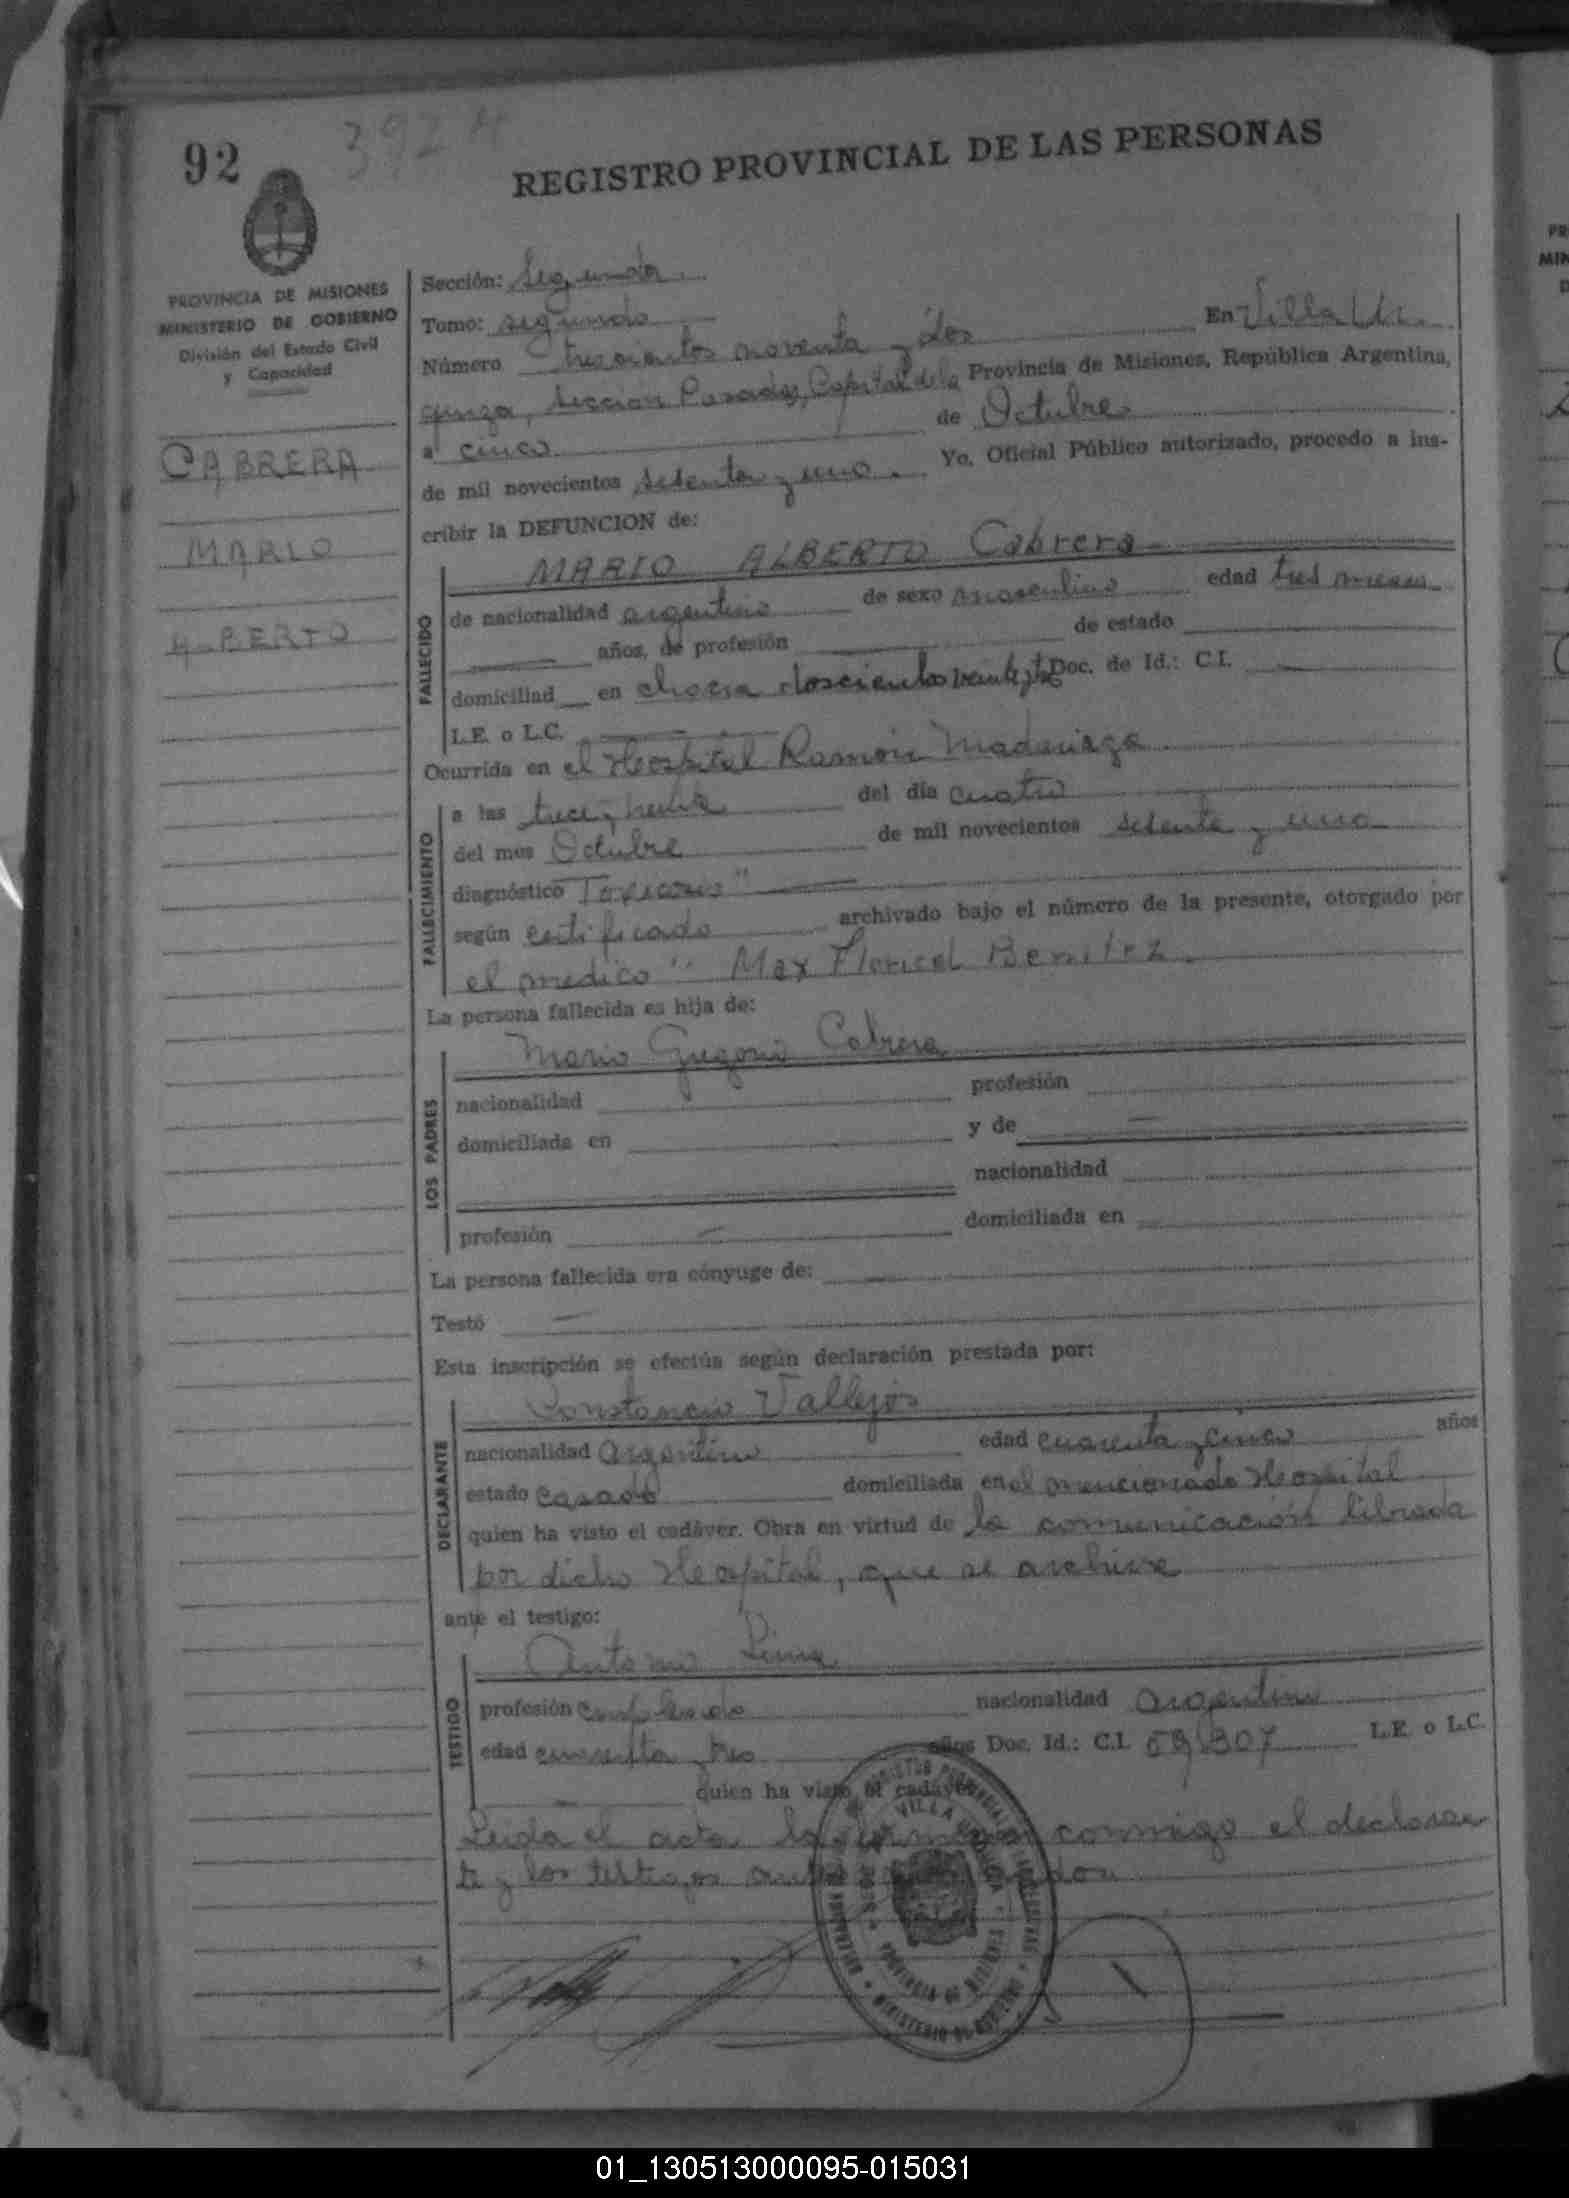 92
392 A
REGISTRO PROVINCIAL DE LAS PERSONAS
PROVINCIA DE MISIONES
MINISTERIO DE GOBIERNO
División del Estado Civil
y Capacidad
CABRERA
MARIO
BERTO
Sección: Segunda
Tomo: segundo
Número trescientos noventa y dos En Villa Ur
quiza, sección Posadas, Capital de la Provincia de Misiones, República Argentina,
a cinco de Octubre
de mil novecientos setenta y uno. Yo, Oficial Público autorizado, procedo a ins-
cribir la DEFUNCION de:
FALLECIDO
MARIO ALBERTO Cabrera
de nacionalidad argentino de sexo masculino edad tres meses
años, de profesión de estado
domiciliad en chacra doscientos Doc. de Id.: C.I.
L.E. o L.C.
Ocurrida en el Hospital Ramón Madariaga
FALLECIMIENTO
a las trece y treinta del día cuatro
del mes Octubre de mil novecientos setenta y uno
diagnóstico Toxicosis"
según certificado archivado bajo el número de la presente, otorgado por
el medico" Max Floricel Benitez.
La persona fallecida es hija de:
LOS PADRES
Mario Gregorio Cabrera
nacionalidad profesión
domiciliada en y de
nacionalidad
profesión domiciliada en
La persona fallecida era cónyuge de:
Testó
Esta inscripción se efectúa según declaración prestada por:
DECLARANTE
Constancio Vallejos
nacionalidad argentino edad cuarenta y cinco años
estado casado domiciliada en el mencionado Hospital
quien ha visto el cadáver. Obra en virtud de la comunicación librada
por dicho Hospital, que se archiva
ante el testigo:
TESTIGO
Antonio
profesión empleado nacionalidad argentino
edad y tres años Doc. Id.: C.I. L.E. o L.C.
quien ha visto el cadáver
Leida el acta la conmigo el declaran
te y los testigos
REGISTRO PROVINCIAL DE LAS PERSONAS
VILLA URQUIZA
PROVINCIA DE MISIONES
MINISTERIO DE GOBIERNO
PR
MIN
D
01_130513000095-015031